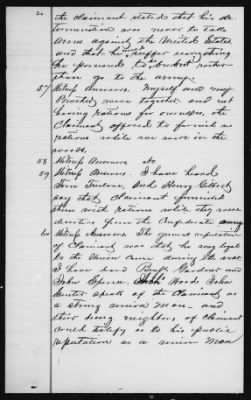 20
the claimant stated that his de
termination was never to take
arms against the United States
and that he suffer everything
he possessed to rather
than go to the army.
57 Witness Answers. Myself and my
Brother were together and not
having rations for ourselves, the
Claimant offered to furnish us
rations while we were in the
woods.
58 Witness Answers No
59 Witness Answers. I have heard
Tom and Henry
say that Claimant furnished
them with rations while they were
deserters from the Confederate army
60 Witness Answers The general reputation
of Claimant was that he was loyal
to the Union cause during the war.
I have heard Gardner and
John Spence Woods John
Hunter speak of the Claimant as
a strong union man - and
they being neighbors of Claimant
could testify as to his public
reputation as a union man